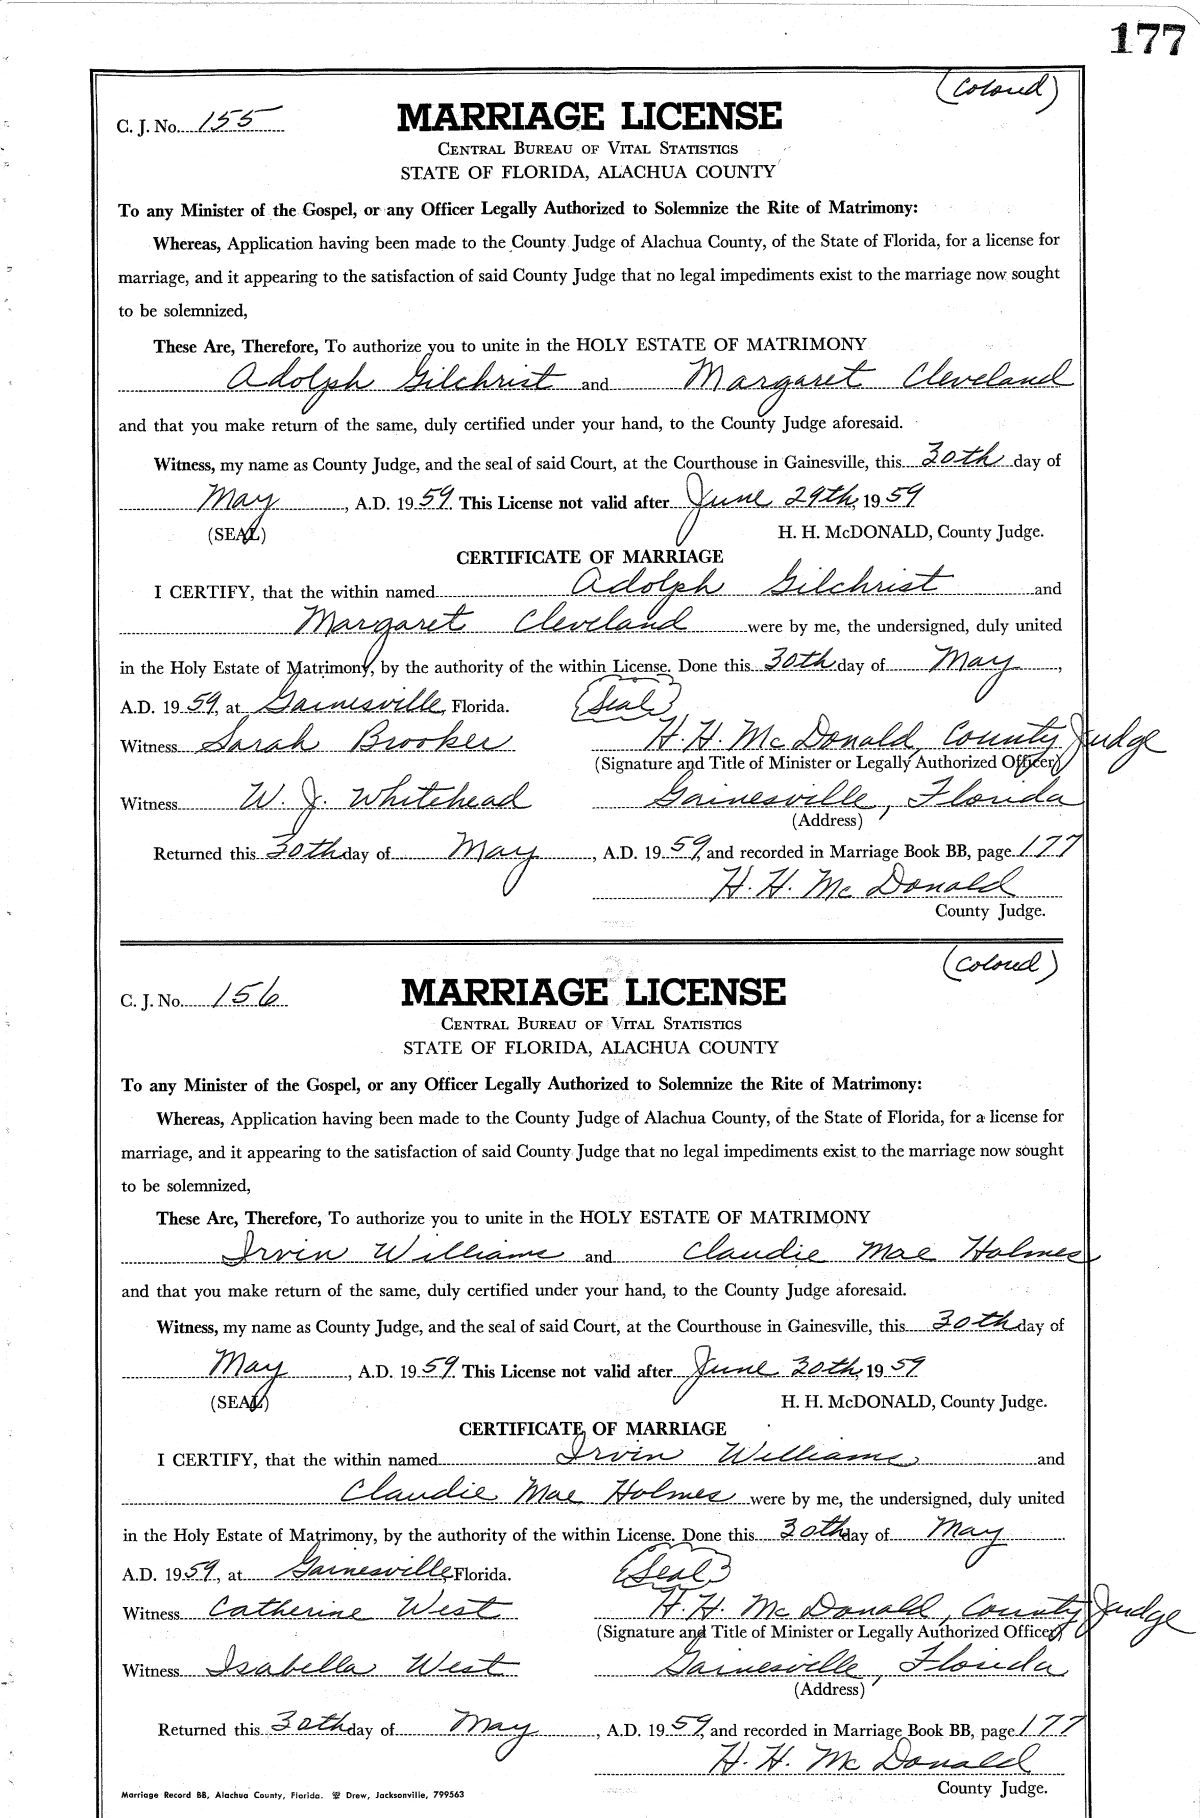 177
(Colored)
C. J. No. 155
MARRIAGE LICENSE
CENTRAL BUREAU OF VITAL STATISTICS
STATE OF FLORIDA, ALACHUA COUNTY
To any Minister of the Gospel, or any Officer Legally Authorized to Solemnize the Rite of Matrimony:
Whereas, Application having been made to the County Judge of Alachua County, of the State of Florida, for a license for
marriage, and it appearing to the satisfaction of said County Judge that no legal impediments exist to the marriage now sought
to be solemnized,
These Are, Therefore, To authorize you to unite in the HOLY ESTATE OF MATRIMONY
Adolph Gilchrist and Margaret Cleveland
and that you make return of the same, duly certified under your hand, to the County Judge aforesaid.
Witness, my name as County Judge, and the seal of said Court, at the Courthouse in Gainesville, this 30th day of
May, A.D. 1959. This License not valid after June 29th, 1959
(SEAL) H. H. McDONALD, County Judge.
CERTIFICATE OF MARRIAGE
I CERTIFY, that the within named Adolph Gilchrist and
Margaret Cleveland were by me, the undersigned, duly united
in the Holy Estate of Matrimony, by the authority of the within License. Done this 30th day of May,
A.D. 1959, at Gainesville, Florida. (Seal)
Witness Sarah Brooker H. H. McDonald, County Judge
(Signature and Title of Minister or Legally Authorized Officer)
Witness W. J. Whitehead Gainesville, Florida
(Address)
Returned this 30th day of May, A.D. 1959, and recorded in Marriage Book BB, page 177
H. H. McDonald
County Judge.
(Colored)
C. J. No. 156
MARRIAGE LICENSE
CENTRAL BUREAU OF VITAL STATISTICS
STATE OF FLORIDA, ALACHUA COUNTY
To any Minister of the Gospel, or any Officer Legally Authorized to Solemnize the Rite of Matrimony:
Whereas, Application having been made to the County Judge of Alachua County, of the State of Florida, for a license for
marriage, and it appearing to the satisfaction of said County Judge that no legal impediments exist to the marriage now sought
to be solemnized,
These Are, Therefore, To authorize you to unite in the HOLY ESTATE OF MATRIMONY
Irvin Williams and Claudie Mae Holmes
and that you make return of the same, duly certified under your hand, to the County Judge aforesaid.
Witness, my name as County Judge, and the seal of said Court, at the Courthouse in Gainesville, this 30th day of
May, A.D. 1959. This License not valid after June 30th, 1959
(SEAL) H. H. McDONALD, County Judge.
CERTIFICATE OF MARRIAGE
I CERTIFY, that the within named Irvin Williams and
Claudie Mae Holmes were by me, the undersigned, duly united
in the Holy Estate of Matrimony, by the authority of the within License. Done this 30th day of May
A.D. 1959, at Gainesville, Florida. (Seal)
Witness Catherine West H. H. McDonald, County Judge
(Signature and Title of Minister or Legally Authorized Officer)
Witness Isabella West Gainesville, Florida
(Address)
Returned this 30th day of May, A.D. 1959, and recorded in Marriage Book BB, page 177
H. H. McDonald
County Judge.
Marriage Record BB, Alachua County, Florida. Drew, Jacksonville, 799563